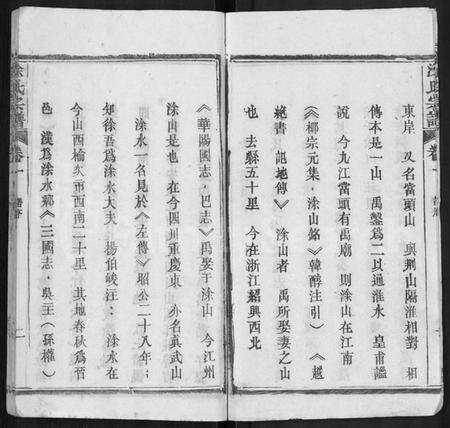 涂氏宗譜 卷一
東岸 又名當頭山 與荆山隔淮相對 相
傳本是一山 禹鑿爲二以通淮水 皇甫謐
說 今九江當頭有禹廟 則涂山在江南
《柳宗元集·涂山銘》韓醇注引 《越
絶書 記地傳》 涂山者 禹所娶妻之山
也 去縣五十里 今在浙江紹興西北
《華陽國志·巴志》禹娶于涂山 今江州
涂山是也 在今四川重慶東 亦名真武山
涂水一名見於《左傳》昭公二十八年：
知徐吾爲涂水大夫 楊伯峻注： 涂水在
今山西榆次市西南二十里 其地春秋爲晉
邑 漢爲涂水鄉《三國志·吳主（孫權）
涂氏宗譜 卷一
二